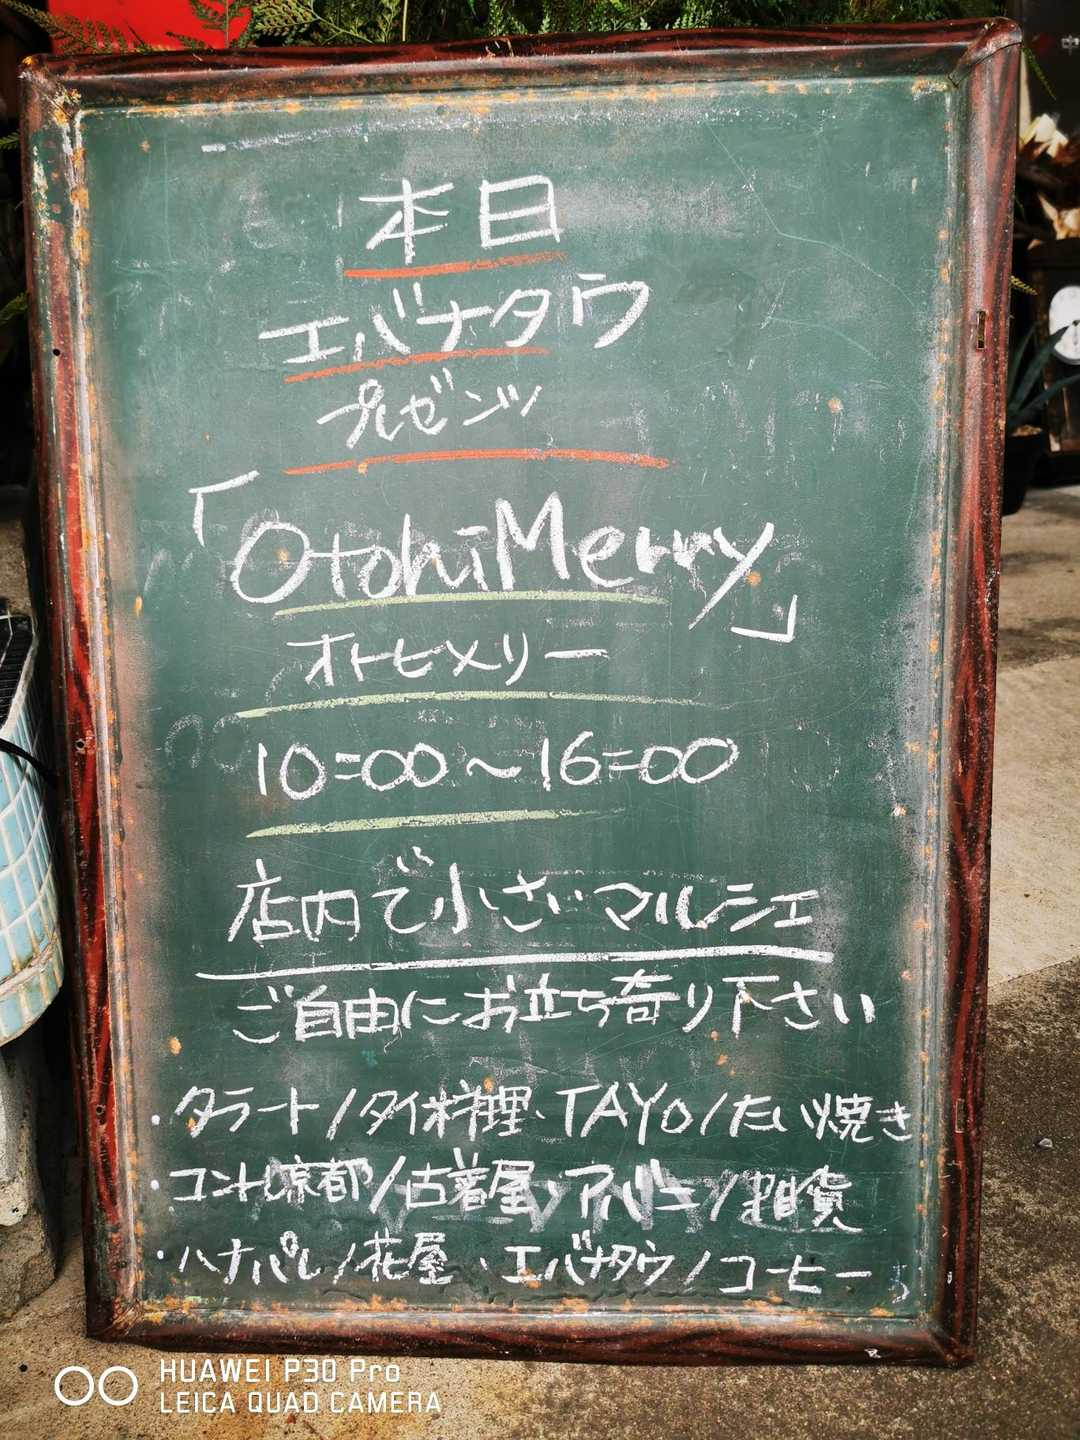 本日
エバナタウ
プレゼンツ
「OtohiMerry」
オトヒメリー
10=00～16=00
店内で小さいマルシェ
ご自由にお立ち寄り下さい
・タラート/タイ料理・TAYO/たい焼き
・コントレ京都/古着屋、アバニ/雑貨
・ハナパレ/花屋、エバナタウ/コーヒー
HUAWEI P30 Pro
LEICA QUAD CAMERA